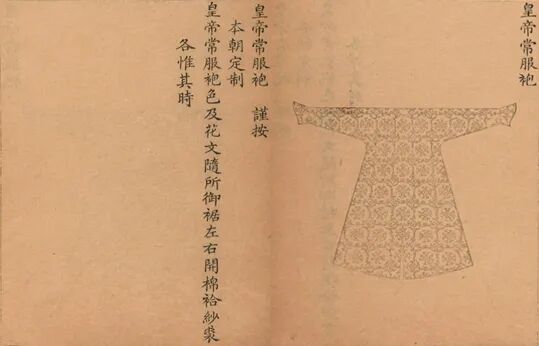 皇帝常服袍
皇帝常服袍　謹按
本朝定制
皇帝常服袍色及花文隨所御裾左右開棉袷紗裘
各惟其時